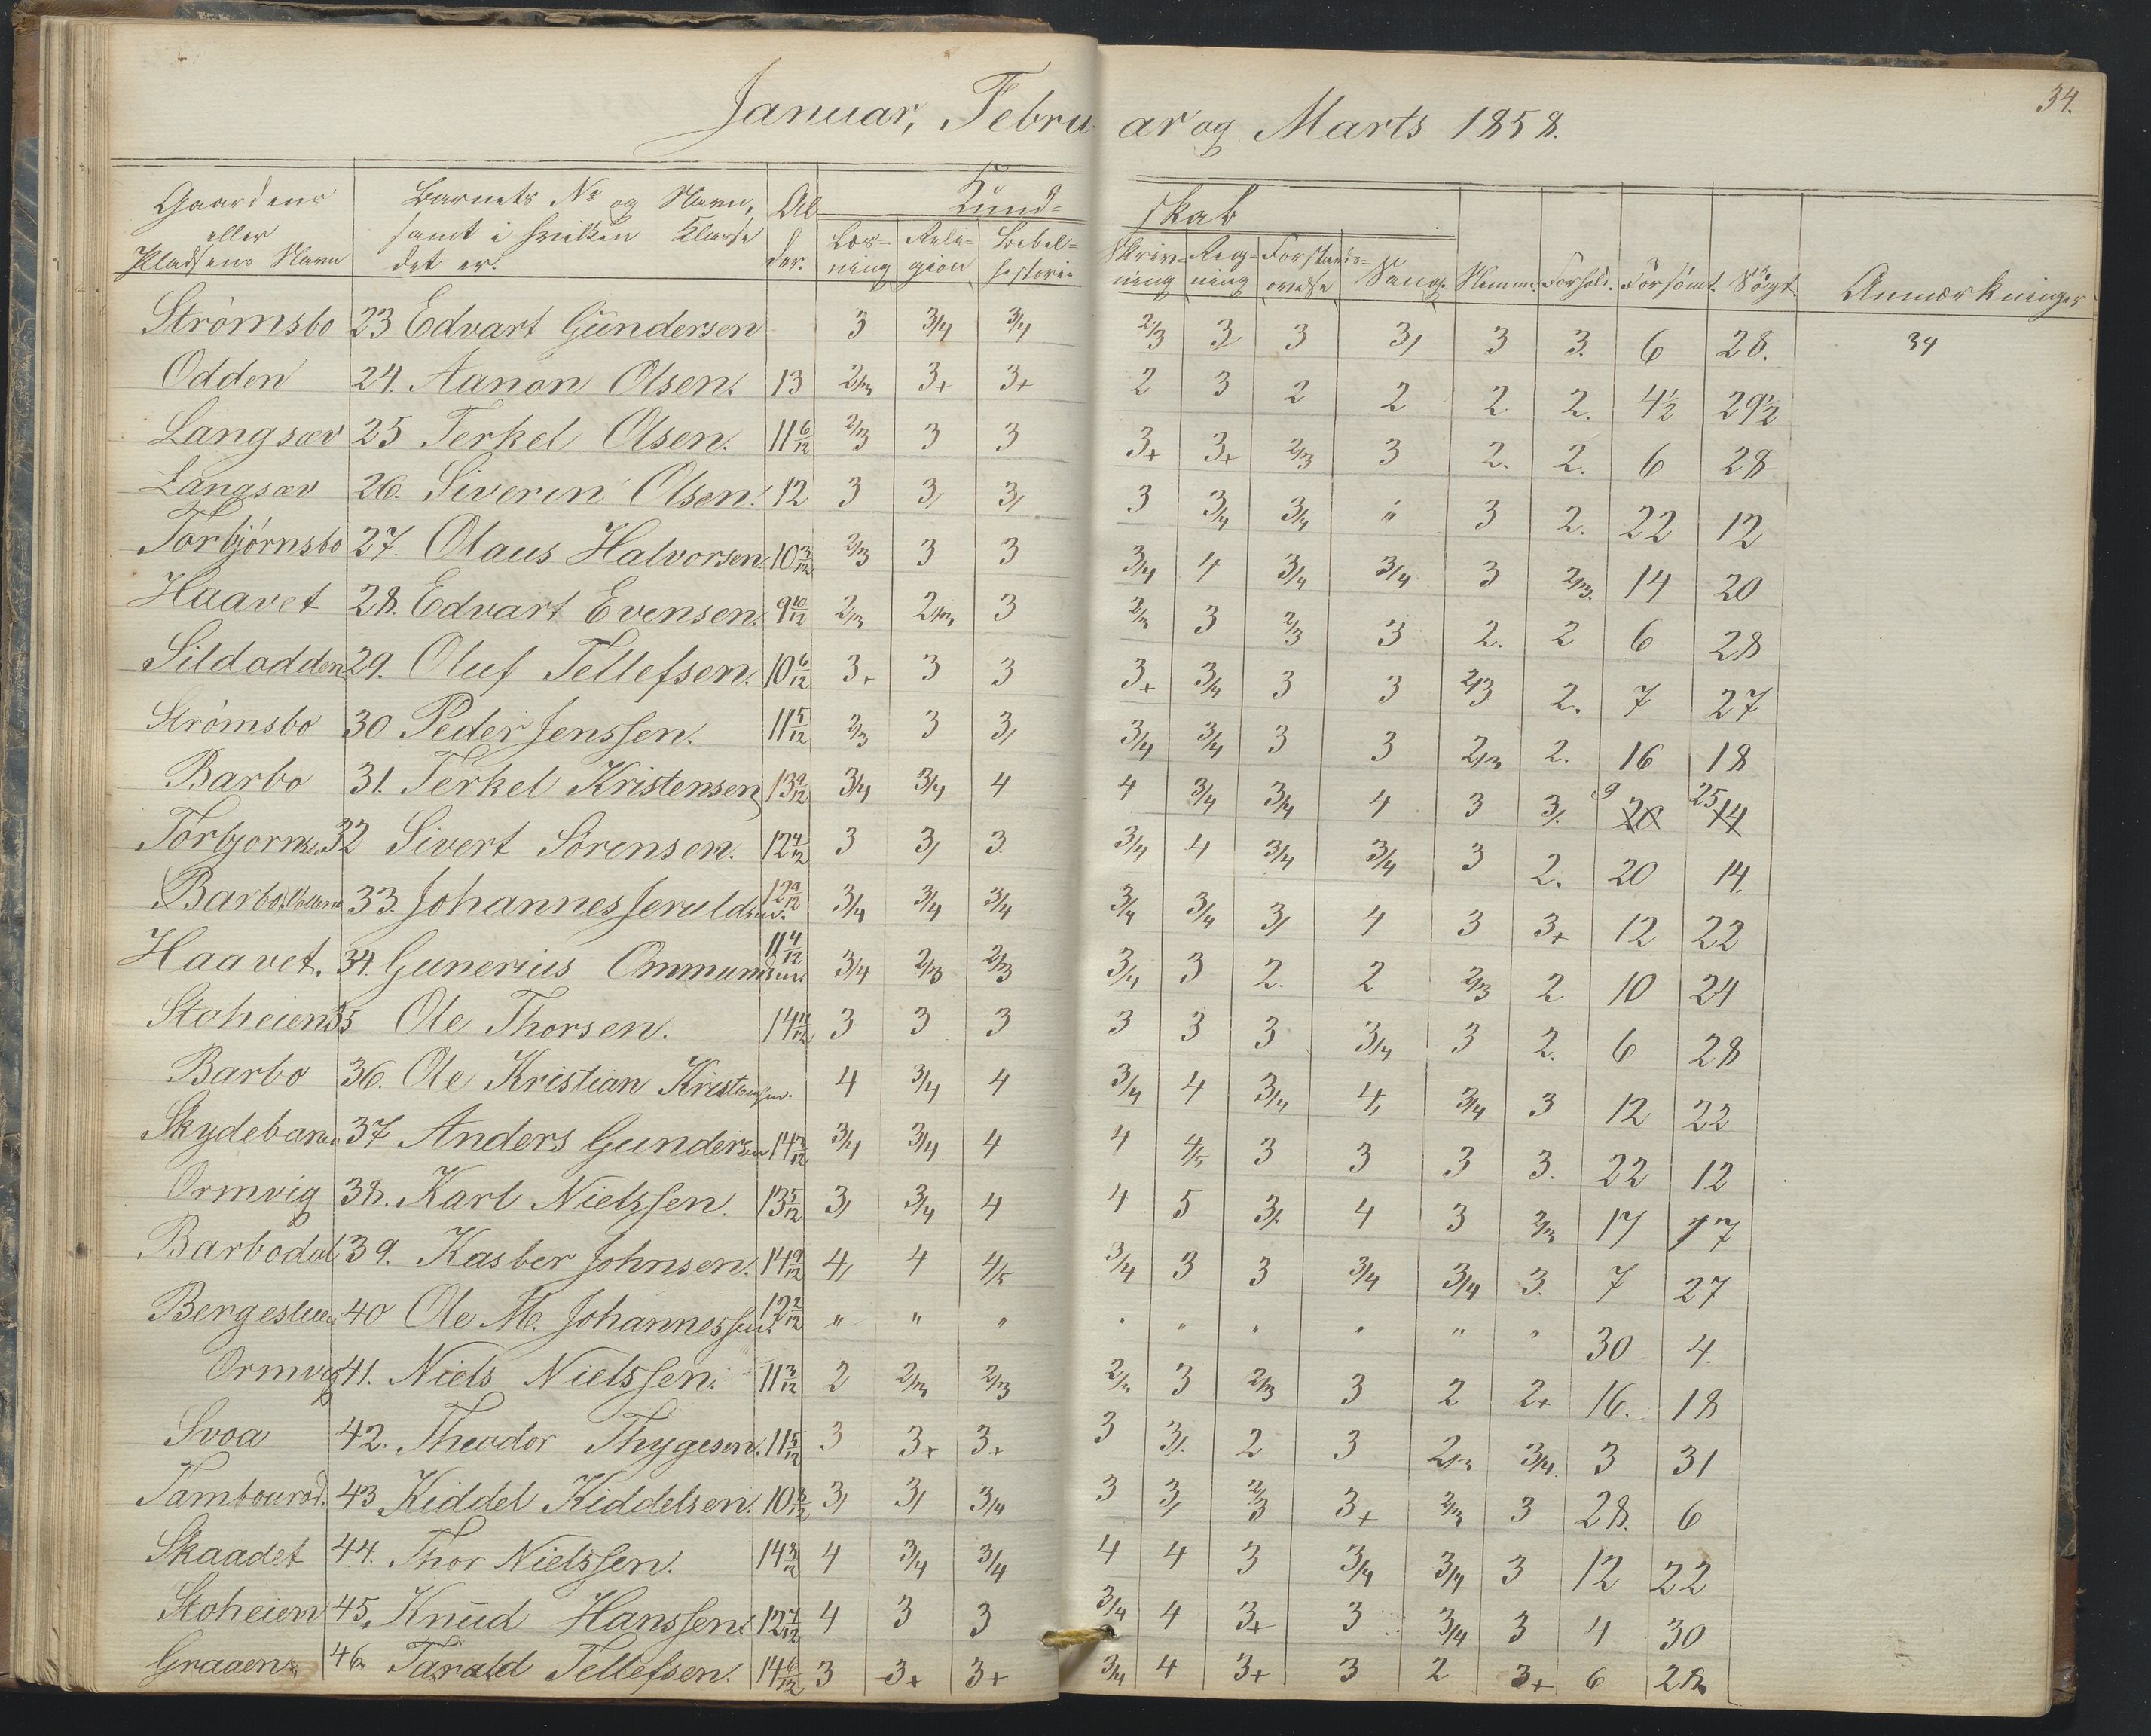 34.
Januar, Februar og Marts 1858.
Gaardens eller Pladsens Navn | Barnets No og Navn, samt i hvilken Klasse det er. | Alder. | Kundskab | Forhold. | Forsömt. | Sögt. | Anmærkninger
Læsning | Religion | Bibelhistorie | Skrivning | Regning | Forstandsövelse | Sang. | Nemme.
Strömsbo 23 Edvart Gündersen 3 3/4 3/4 2/3 3, 3 3, 3 3. 6 28. 34
Odden 24. Aanon Olsen. 13 2/3 3+ 3+ 2 3 2 2 2 2. 4½ 29½
Langsæv 25 Terkel Olsen. 11 6/12 2/3 3 3 3+ 3+ 2/3 3 2. 2. 6 28
Langsæv 26. Siverin Olsen. 12 3 3, 3, 3 3/4 3/4 " 3 2. 22 12
Torbjörnsbo 27. Olaus Halvorsen. 10 3/12 2/3 3 3 3/4 4 3/4 3/4 3 2/3. 14 20
Haavet 28. Edvart Evensen. 9 10/12 2/3 2/3 3 2/3 3 2/3 3 2. 2 6 28
Sildodden 29. Oluf Tellefsen. 10 6/12 3+ 3 3 3+ 3/4 3 3 2/3 2. 7 27
Strömsbo 30 Peder Jenssen. 11 5/12 2/3 3 3, 3/4 3/4 3 3 2/3 2. 16 18
Barbo 31. Terkel Kristensen 13 9/12 3/4 3/4 4 4 3/4 3/4 4 3 3, 9 20 25 14
Torbjornsb. 32 Sivert Sörensen. 12 4/12 3 3, 3 3/4 4 3/4 3/4 3 2. 20 14.
Barbo 33. Johannes Jeruldsen. 12 9/12 3/4 3/4 3/4 3/4 3/4 3, 4 3 3+ 12 22
Haavet. 34. Gunerius Ommundsen. 11 4/12 3/4 2/3 2/3 3/4 3 2. 2 2/3 2 10 24
Stoheien 35 Ole Thorsen. 14 11/12 3 3 3 3 3 3 3/4 3 2. 6 28
Barbo 36. Ole Kristian Kristensen. 4 3/4 4 3/4 4 3/4 4, 3/4 3 12 22
Skydebanen 37 Anders Gundersen 14 3/12 3/4 3/4 4 4 4/5 3 3 3 3. 22 12
Ormvig 38. Karl Nielssen. 13 5/12 3, 3/4 4 4 5 3, 4 3 2/3 17 17
Barbodal 39. Kasber Johnsen. 14 9/12 4, 4 4/5 3/4 3 3 3/4 3/4 3. 7 27
40 Ole M. Johannessen. 12 2/12 " " " " " " " " " 30 4.
Ormvig 41. Niels Nielssen. 11 3/12 2 2/3 2/3 2/3 3 2/3 3 2 2+ 16. 18
Svoa 42. Theodor Thygesen. 11 5/12 3 3+ 3+ 3 3, 2 3 2/3 3/4. 3 31
Tambourod. 43 Kiddel Kiddelsen. 10 8/12 3, 3, 3/4 3 3, 2/3 3+ 2/3 3 28. 6
Skaadet 44. Thor Nielssen. 14 8/12 4 3/4 3/4 4 4 3 3/4 3/4 3 12 22
Stoheien 45. Knud Hanssen. 12 7/12 4 3 3 3/4 4 3+ 3 3/4 3 4 30
Graaen. 46. Tarald Tellefsen. 14 6/12 3 3+ 3+ 3/4 4 3+ 3 2 3+ 6 28.